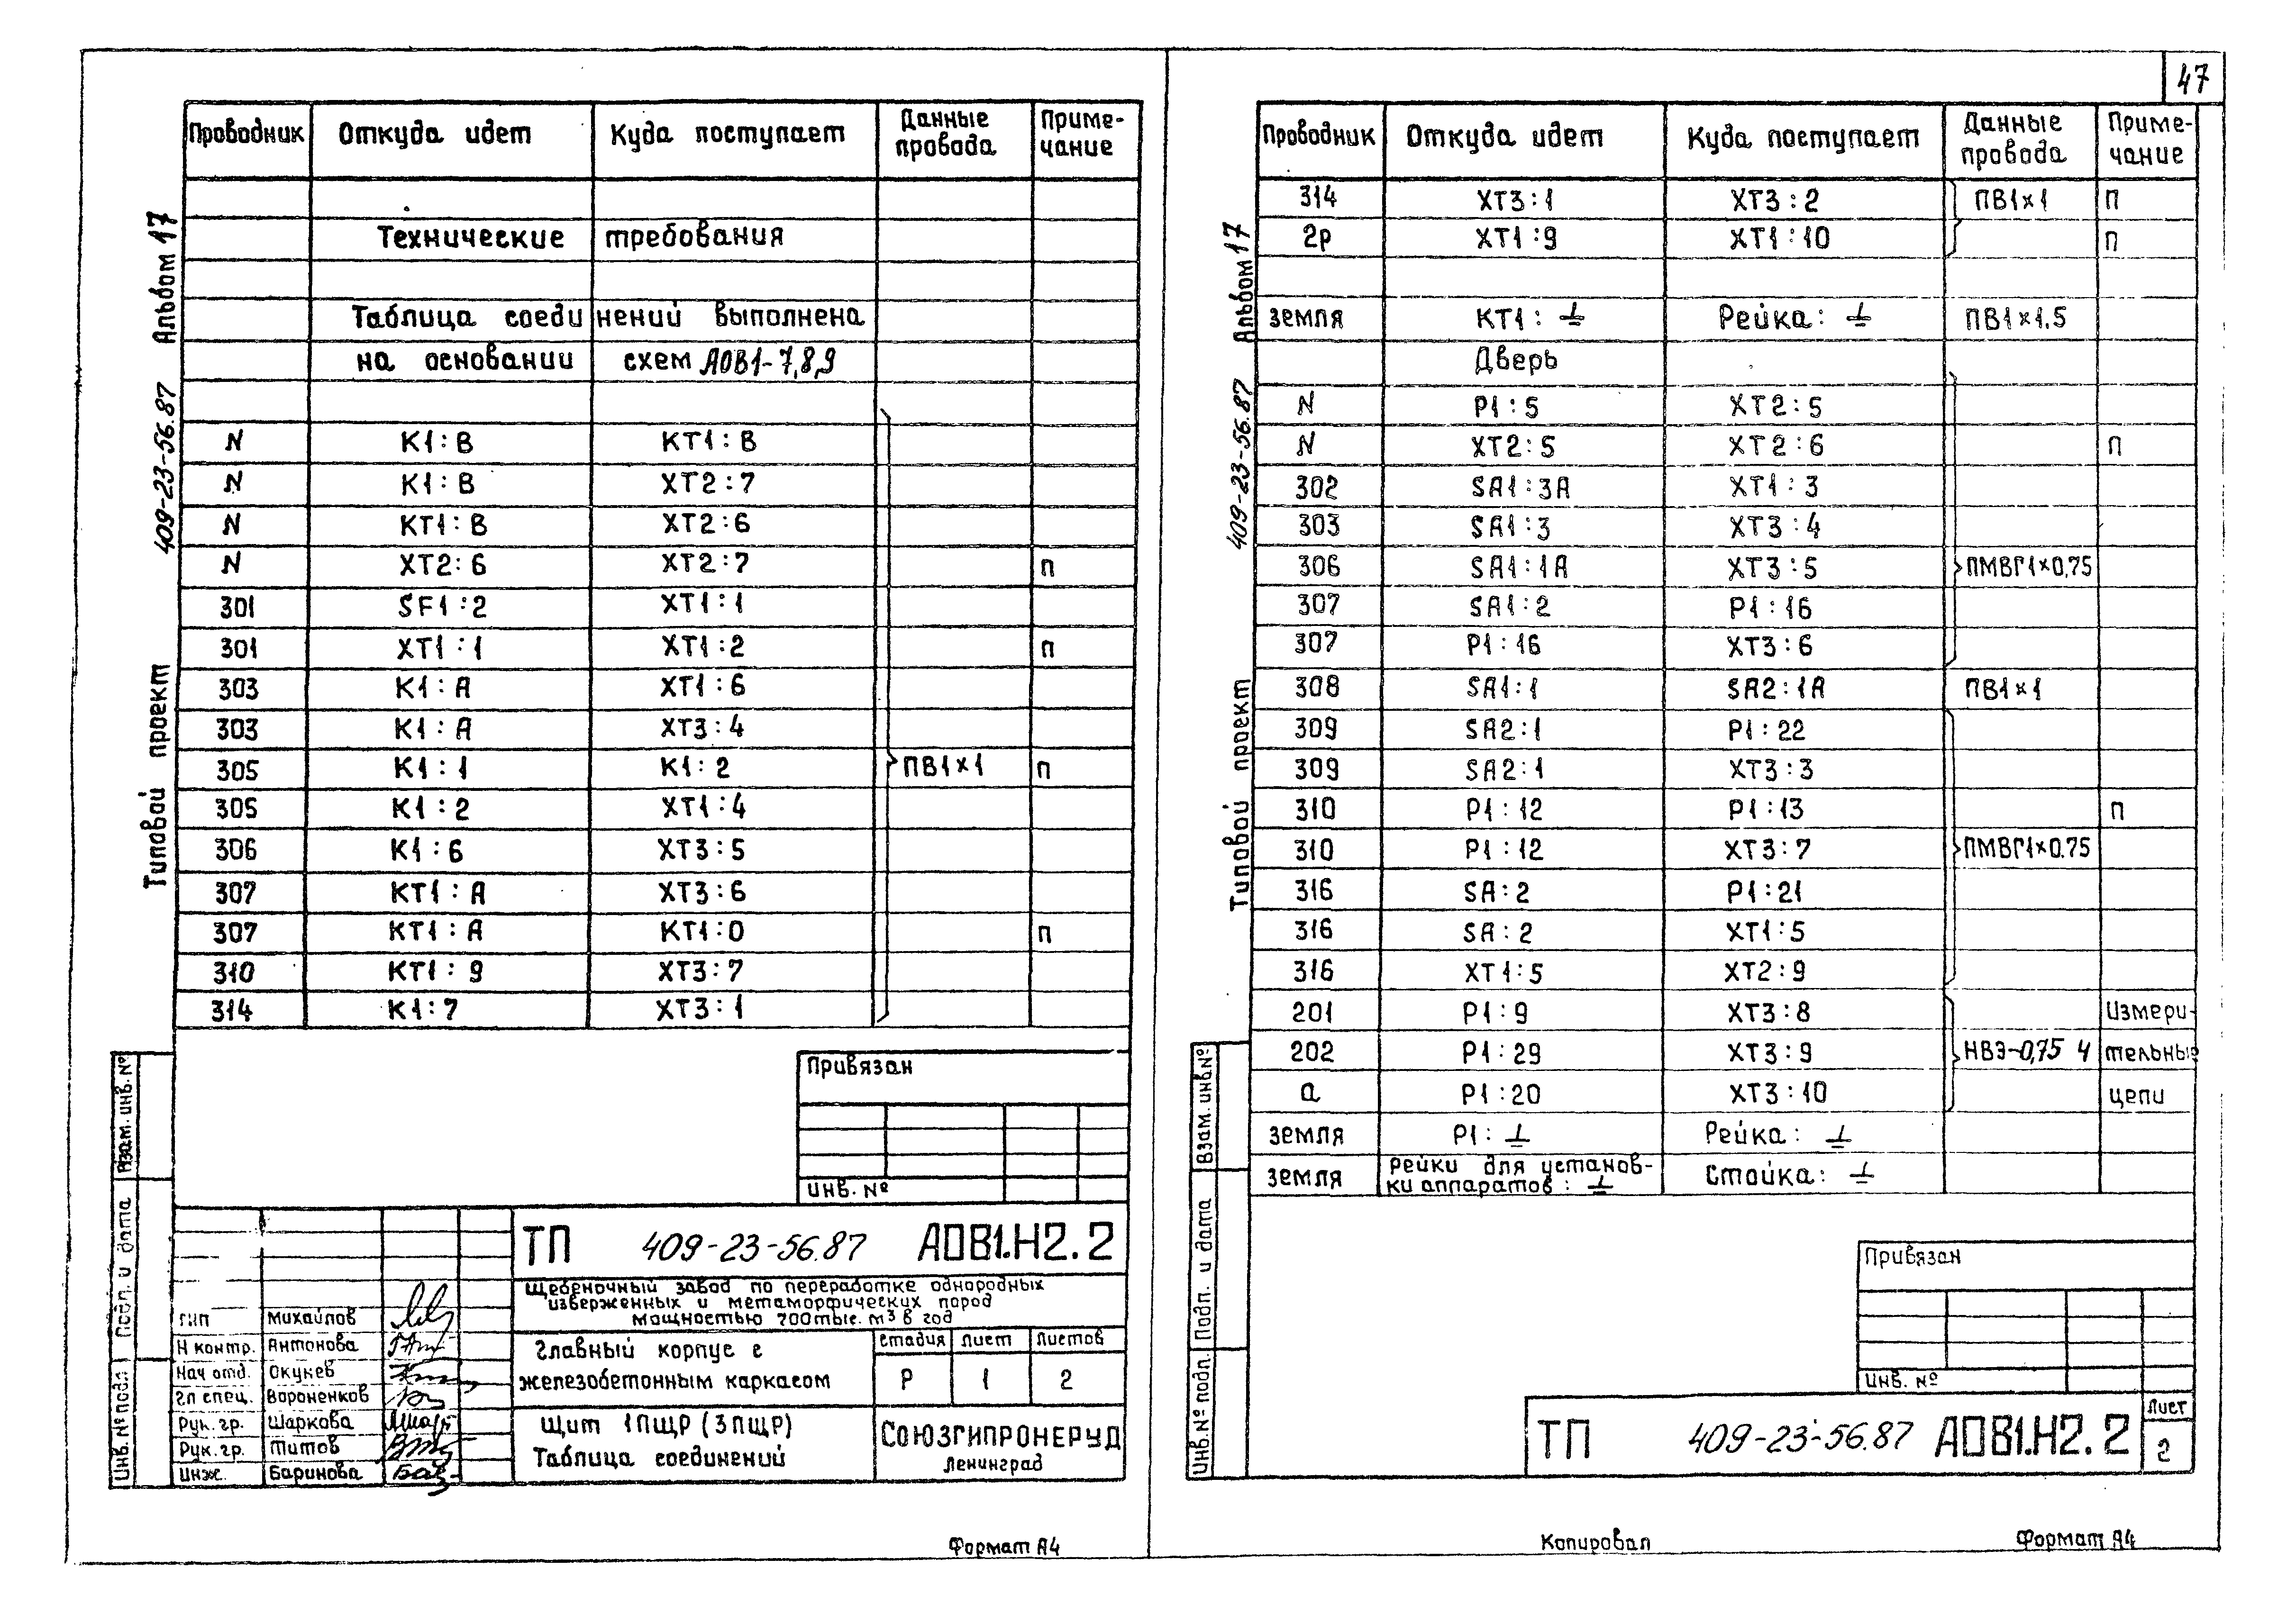 47
Альбом 17
409-23-56.87
Типовой проект
Проводник Откуда идет Куда поступает Данные провода Примечание
Технические требования
Таблица соединений выполнена
на основании схем АОВ1-7,8,9
N К1:В КТ1:В
N К1:В ХТ2:7
N КТ1:В ХТ2:6
N ХТ2:6 ХТ2:7 П
301 SF1:2 ХТ1:1
301 ХТ1:1 ХТ1:2 П
303 К1:А ХТ1:6
303 К1:А ХТ3:4
305 К1:1 К1:2 ПВ1×1 П
305 К1:2 ХТ1:4
306 К1:6 ХТ3:5
307 КТ1:А ХТ3:6
307 КТ1:А КТ1:0 П
310 КТ1:9 ХТ3:7
314 К1:7 ХТ3:1
Привязан
Инв. №
Взам. инв. №
Подп. и дата
Инв. № подл
ТП 409-23-56.87 АОВ1.Н2.2
Щебеночный завод по переработке однородных
изверженных и метаморфических пород
мощностью 700тыс. м3 в год
Главный корпус с
железобетонным каркасом
Стадия Лист Листов
Р 1 2
Щит 1ПЩР (3ПЩР)
Таблица соединений
СОЮЗГИПРОНЕРУД
Ленинград
ГИП Михайлов
Н контр. Антонова
Нач отд. Окунев
Гл спец. Вороненков
Рук. гр. Шаркова
Рук. гр. Титов
Инж. Баринова
Формат А4
Альбом 17
409-23-56.87
Типовой проект
Проводник Откуда идет Куда поступает Данные провода Примечание
314 ХТ3:1 ХТ3:2 ПВ1×1 П
2р ХТ1:9 ХТ1:10 П
земля КТ1:⏚ Рейка:⏚ ПВ1×1.5
Дверь
N Р1:5 ХТ2:5
N ХТ2:5 ХТ2:6 П
302 SA1:3A ХТ1:3
303 SA1:3 ХТ3:4
306 SA1:1A ХТ3:5 ПМВГ1×0,75
307 SA1:2 Р1:16
307 Р1:16 ХТ3:6
308 SA1:1 SA2:1A ПВ1×1
309 SA2:1 Р1:22
309 SA2:1 ХТ3:3
310 Р1:12 Р1:13 П
310 Р1:12 ХТ3:7 ПМВГ1×0.75
316 SA:2 Р1:21
316 SA:2 ХТ1:5
316 ХТ1:5 ХТ2:9
201 Р1:9 ХТ3:8 Измери-
202 Р1:29 ХТ3:9 НВЭ-0,75 4 тельные
а Р1:20 ХТ3:10 цепи
земля Р1:⏚ Рейка:⏚
земля Рейки для установ-
ки аппаратов:⏚ Стойка:⏚
Привязан
Инв. №
Взам. инв №
Подп. и дата
Инв. № подл.
ТП 409-23-56.87 АОВ1.Н2.2
Лист
2
Копировал
Формат А4